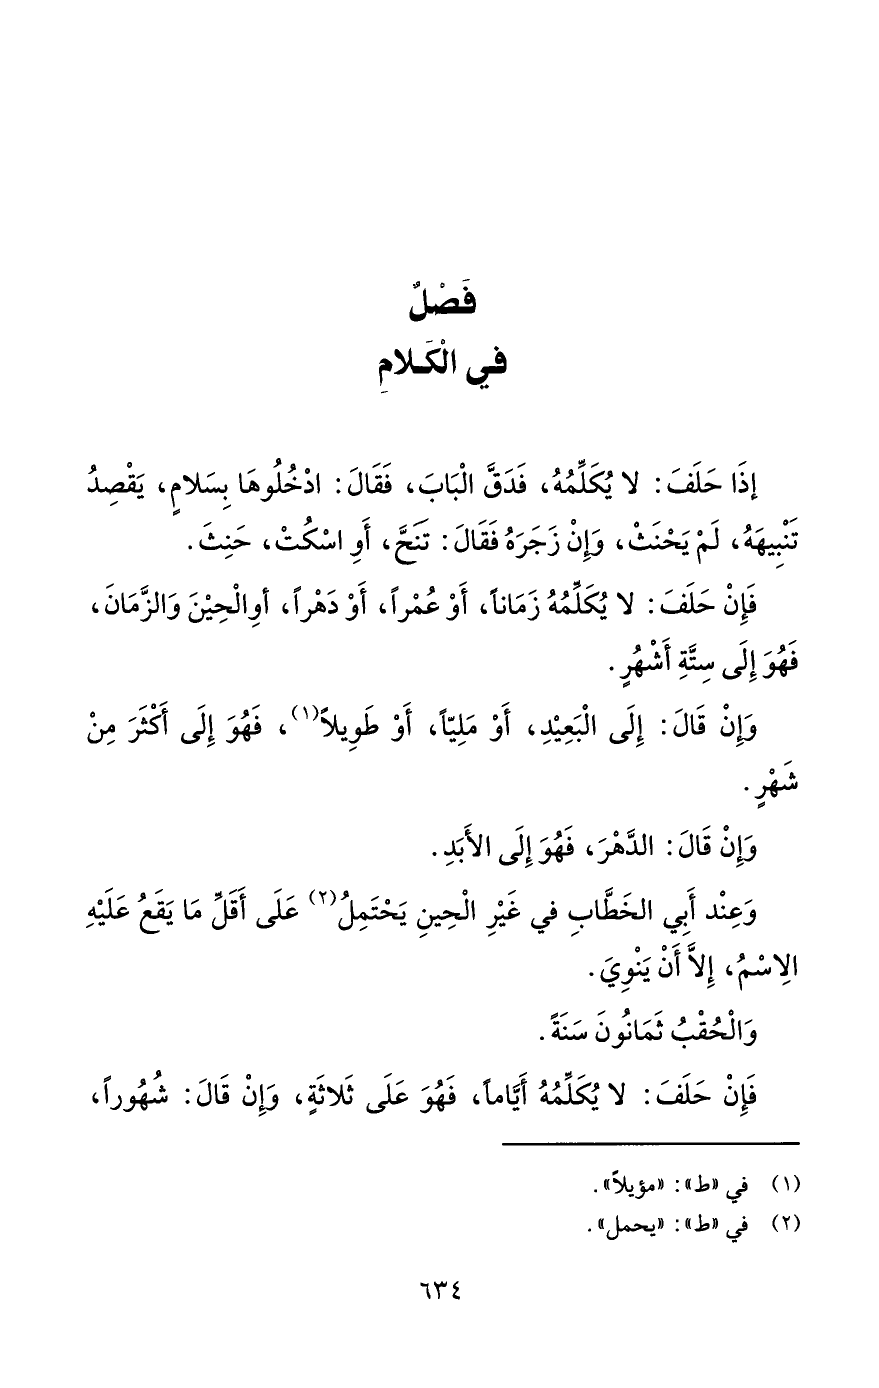 فَصْلٌ
في الْكَلامِ
إذَا حَلَفَ: لا يُكَلِّمُهُ، فَدَقَّ الْبَابَ، فَقَالَ: ادْخُلُوهَا بِسَلامٍ، يَقْصِدُ
تَنْبِيهَهُ، لَمْ يَحْنَثْ، وَإِنْ زَجَرَهُ فَقَالَ: تَنَحَّ، أَوِ اسْكُتْ، حَنِثَ.
فَإِنْ حَلَفَ: لا يُكَلِّمُهُ زَمَاناً، أَوْ عُمْراً، أَوْ دَهْراً، أوالْحِيْنَ وَالزَّمَانَ،
فَهُوَ إِلَى سِتَّةِ أَشْهُرٍ.
وَإِنْ قَالَ: إِلَى الْبَعِيْدِ، أَوْ مَلِيّاً، أَوْ طَوِيلاً(١)، فَهُوَ إِلَى أَكْثَرَ مِنْ
شَهْرٍ.
وَإِنْ قَالَ: الدَّهْرَ، فَهُوَ إِلَى الأَبَدِ.
وَعِنْد أَبِي الخَطَّابِ في غَيْرِ الْحِينِ يَحْتَمِلُ(٢) عَلَى أَقَلِّ مَا يَقَعُ عَلَيْهِ
الِاسْمُ، إِلاَّ أَنْ يَنْوِيَ.
وَالْحُقْبُ ثَمَانُونَ سَنَةً.
فَإِنْ حَلَفَ: لا يُكَلِّمُهُ أَيَّاماً، فَهُوَ عَلَى ثَلاثَةٍ، وَإِنْ قَالَ: شُهُوراً،
(١) في «ط»: «مؤيلاً».
(٢) في «ط»: «يحمل».
٦٣٤